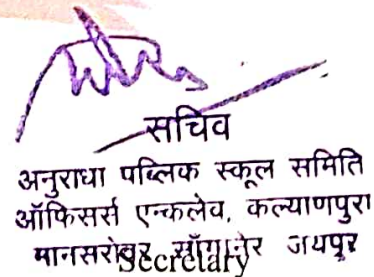 सचिव
अनुराधा पब्लिक स्कूल समिति
ऑफिसर्स एन्कलेव, कल्याणपुरा
मानसरोवर, साँगानेर जयपुर
Secretary